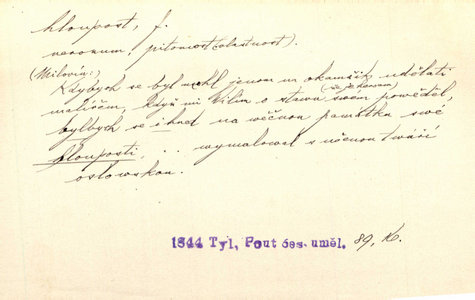 hloupost, f.
nerozum, pitomost (vlastnost).
(Milovín:)
Kdybych se byl mohl jenom na okamžik udělati
malířem, když mi Vilím o stavu svém powěděl,
(že je ženám)
bylbych se ihned na věčnou památku své
hlouposti, .. wymalowal s věčnou tváří
oslowskou.
1844 Tyl, Pout čes. uměl. 89, K.